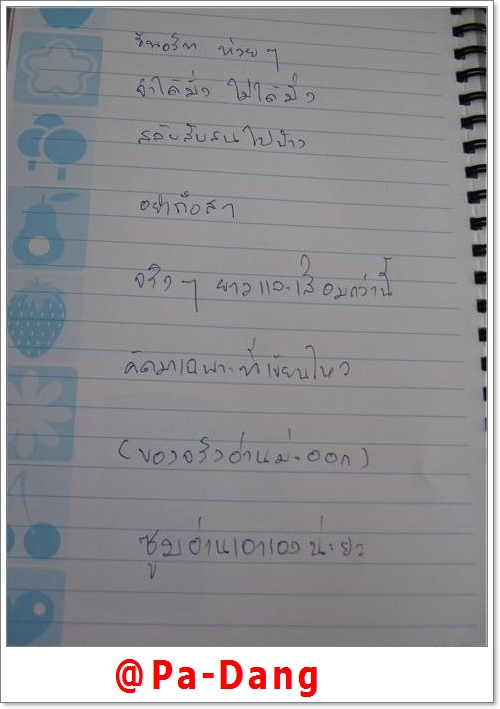 รีพอร์ต ห่วยๆ
จำได้มั่ง ไม่ได้มั่ง
สลับสับสนไปบ้าง
อย่าถือสา
จริงๆ ยาวและเสื่อมกว่านี้
คัดมาเฉพาะที่เขียนไหว
(ของจริงอ่านม่ะออก)
ซูมอ่านเอาเองน่ะยะ
@Pa-Dang